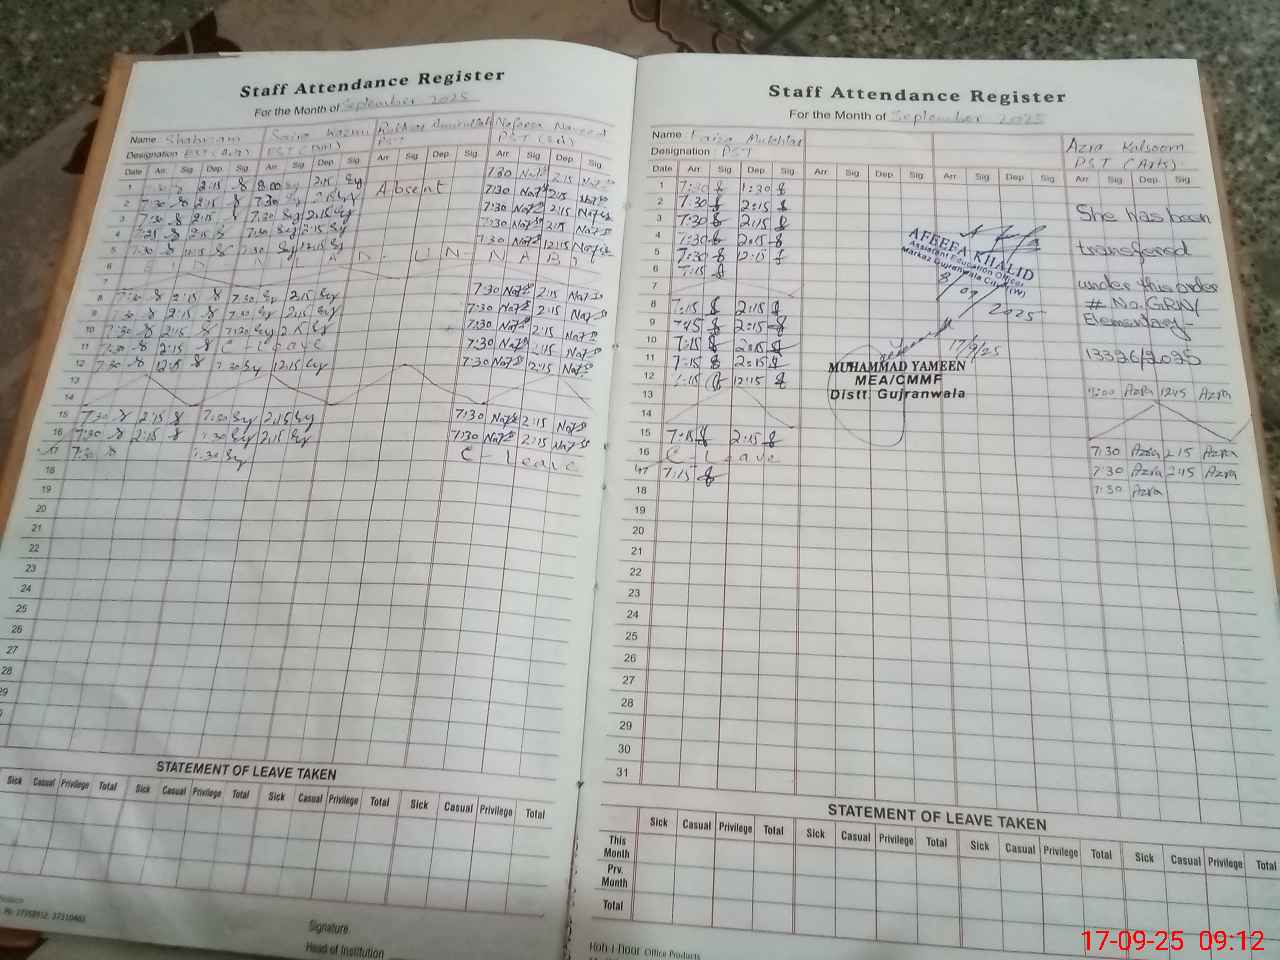 Staff Attendance Register
For the Month of September 2025
Name: Shabnam Saira Kazmi Nafeesa Naveed
Designation EST (Arts) PST PST (Sci)
Date Arr Sig Dep. Sig Arr Sig Dep. Sig Arr Sig Dep Sig Arr Sig Dep. Sig
1 2:15 8:00 2:15 Absent 7:30 2:15
2 7:30 2:15 7:30 2:15 7:30 2:15
3 7:30 2:15 7:30 2:15 7:30 2:15
4 2:15 7:30 2:15 7:30 2:15
5 7:30 12:15 7:30 12:15 7:30 12:15
6 E I D M I L A D - U N - N A B I
7
8 7:30 2:15 7:30 2:15 7:30 2:15
9 7:30 2:15 7:30 2:15 7:30 2:15
10 7:30 2:15 7:30 2:15 7:30 2:15
11 7:30 2:15 C - Leave 7:30 2:15
12 7:30 12:15 7:30 12:15 7:30 12:15
13
14
15 7:30 2:15 7:00 2:15 7:30 2:15
16 7:30 2:15 7:30 2:15 7:30 2:15
17 7:30 7:30 C - Leave
18
19
20
21
22
23
24
25
26
27
28
29
STATEMENT OF LEAVE TAKEN
Sick Casual Privilege Total Sick Casual Privilege Total Sick Casual Privilege Total Sick Casual Privilege Total
Signature
Head of Institution
Staff Attendance Register
For the Month of September 2025
Name: Faiza Mukhtar Azra Kalsoom
Designation PST PST (Arts)
Date Arr Sig Dep. Sig Arr Sig Dep. Sig Arr Sig Dep. Sig Arr Sig Dep. Sig
1 7:30 1:30
2 7:30 2:15 She has been
3 7:30 2:15
4 7:30 2:15 transfered
5 7:30 12:15
6 7:15 under this order
7 # No. GRW/
8 7:15 2:15 Elementary-
9 7:45 2:15
10 7:15 2:15 13326/2025
11 7:15 2:15
12 7:15 12:15 Azra 12:45 Azra
13
14
15 7:15 2:15 7:30 Azra 2:15 Azra
16 C - Leave 7:30 Azra 2:15 Azra
17 7:15 7:30 Azra
18
19
20
21
22
23
24
25
26
27
28
29
30
31
AFEEFA KHALID
Assistant Education Officer
Markaz Gujranwala City (W)
8/09/2025
17/9/25
MUHAMMAD YAMEEN
MEA/CMMF
Distt. Gujranwala
STATEMENT OF LEAVE TAKEN
Sick Casual Privilege Total Sick Casual Privilege Total Sick Casual Privilege Total Sick Casual Privilege Total
This Month
Prv. Month
Total
Office Products
17-09-25 09:12